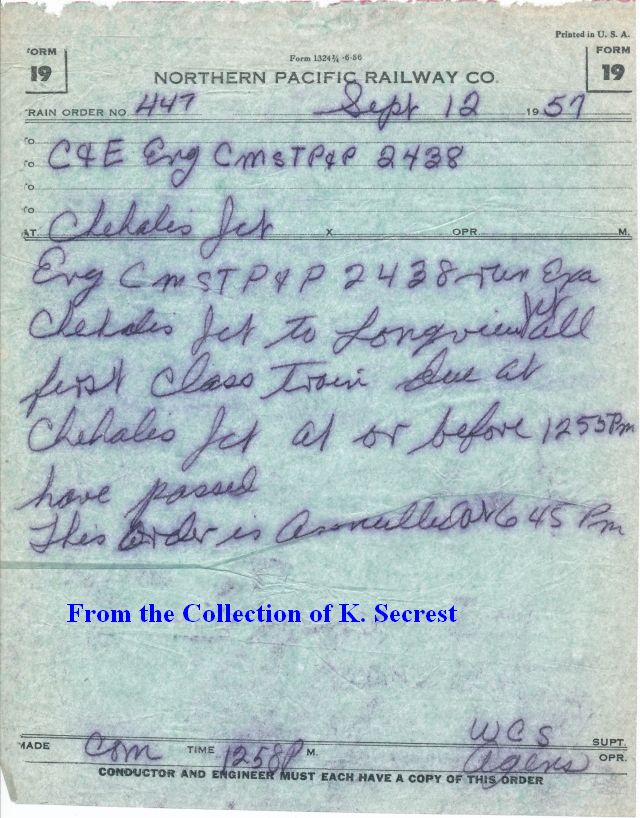 Printed in U. S. A.
FORM 19
Form 1324¾ -6-56
FORM 19
NORTHERN PACIFIC RAILWAY CO.
TRAIN ORDER NO 447 Sept 12 1957
To
To C&E Eng CMSTP&P 2438
To
To
AT Chehalis Jct X OPR. M.
Eng CMSTP&P 2438 run Exa
Chehalis Jct to Longview Jct all
first class train due at
Chehalis Jct at or before 1255 Pm
have passed
This order is Annulled at 645 Pm
From the Collection of K. Secrest
WCS SUPT.
MADE Com TIME 1258P M. OPR.
CONDUCTOR AND ENGINEER MUST EACH HAVE A COPY OF THIS ORDER